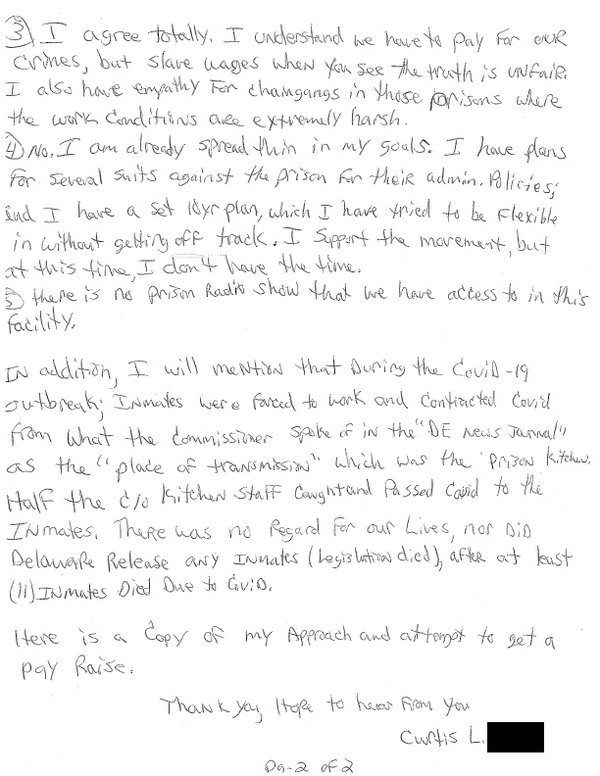 3) I agree totally. I understand we have to pay for our
crimes, but slave wages when you see the truth is unfair.
I also have empathy for chaingangs in those prisons where
the work conditions are extremely harsh.
4) No. I am already spread thin in my goals. I have plans
for several suits against the prison for their admin. Policies;
and I have a set 10yr plan, which I have tried to be flexible
in without getting off track. I support the movement, but
at this time, I don't have the time.
5) there is no prison Radio show that we have access to in this
facility.
In addition, I will mention that During the Covid-19
outbreak; Inmates were forced to work and contracted Covid
from what the Commissioner spoke of in the "DE News Journal"
as the "place of transmission" which was the Prison kitchen.
Half the C/O Kitchen Staff Caught and Passed Covid to the
Inmates. There was no Regard for our Lives, nor Did
Delaware Release any Inmates (Legislation died), after at least
(11) Inmates Died Due to Covid.
Here is a Copy of my Approach and attempt to get a
pay Raise.
Thank you, Hope to hear from you
Curtis L.
Pg-2 of 2